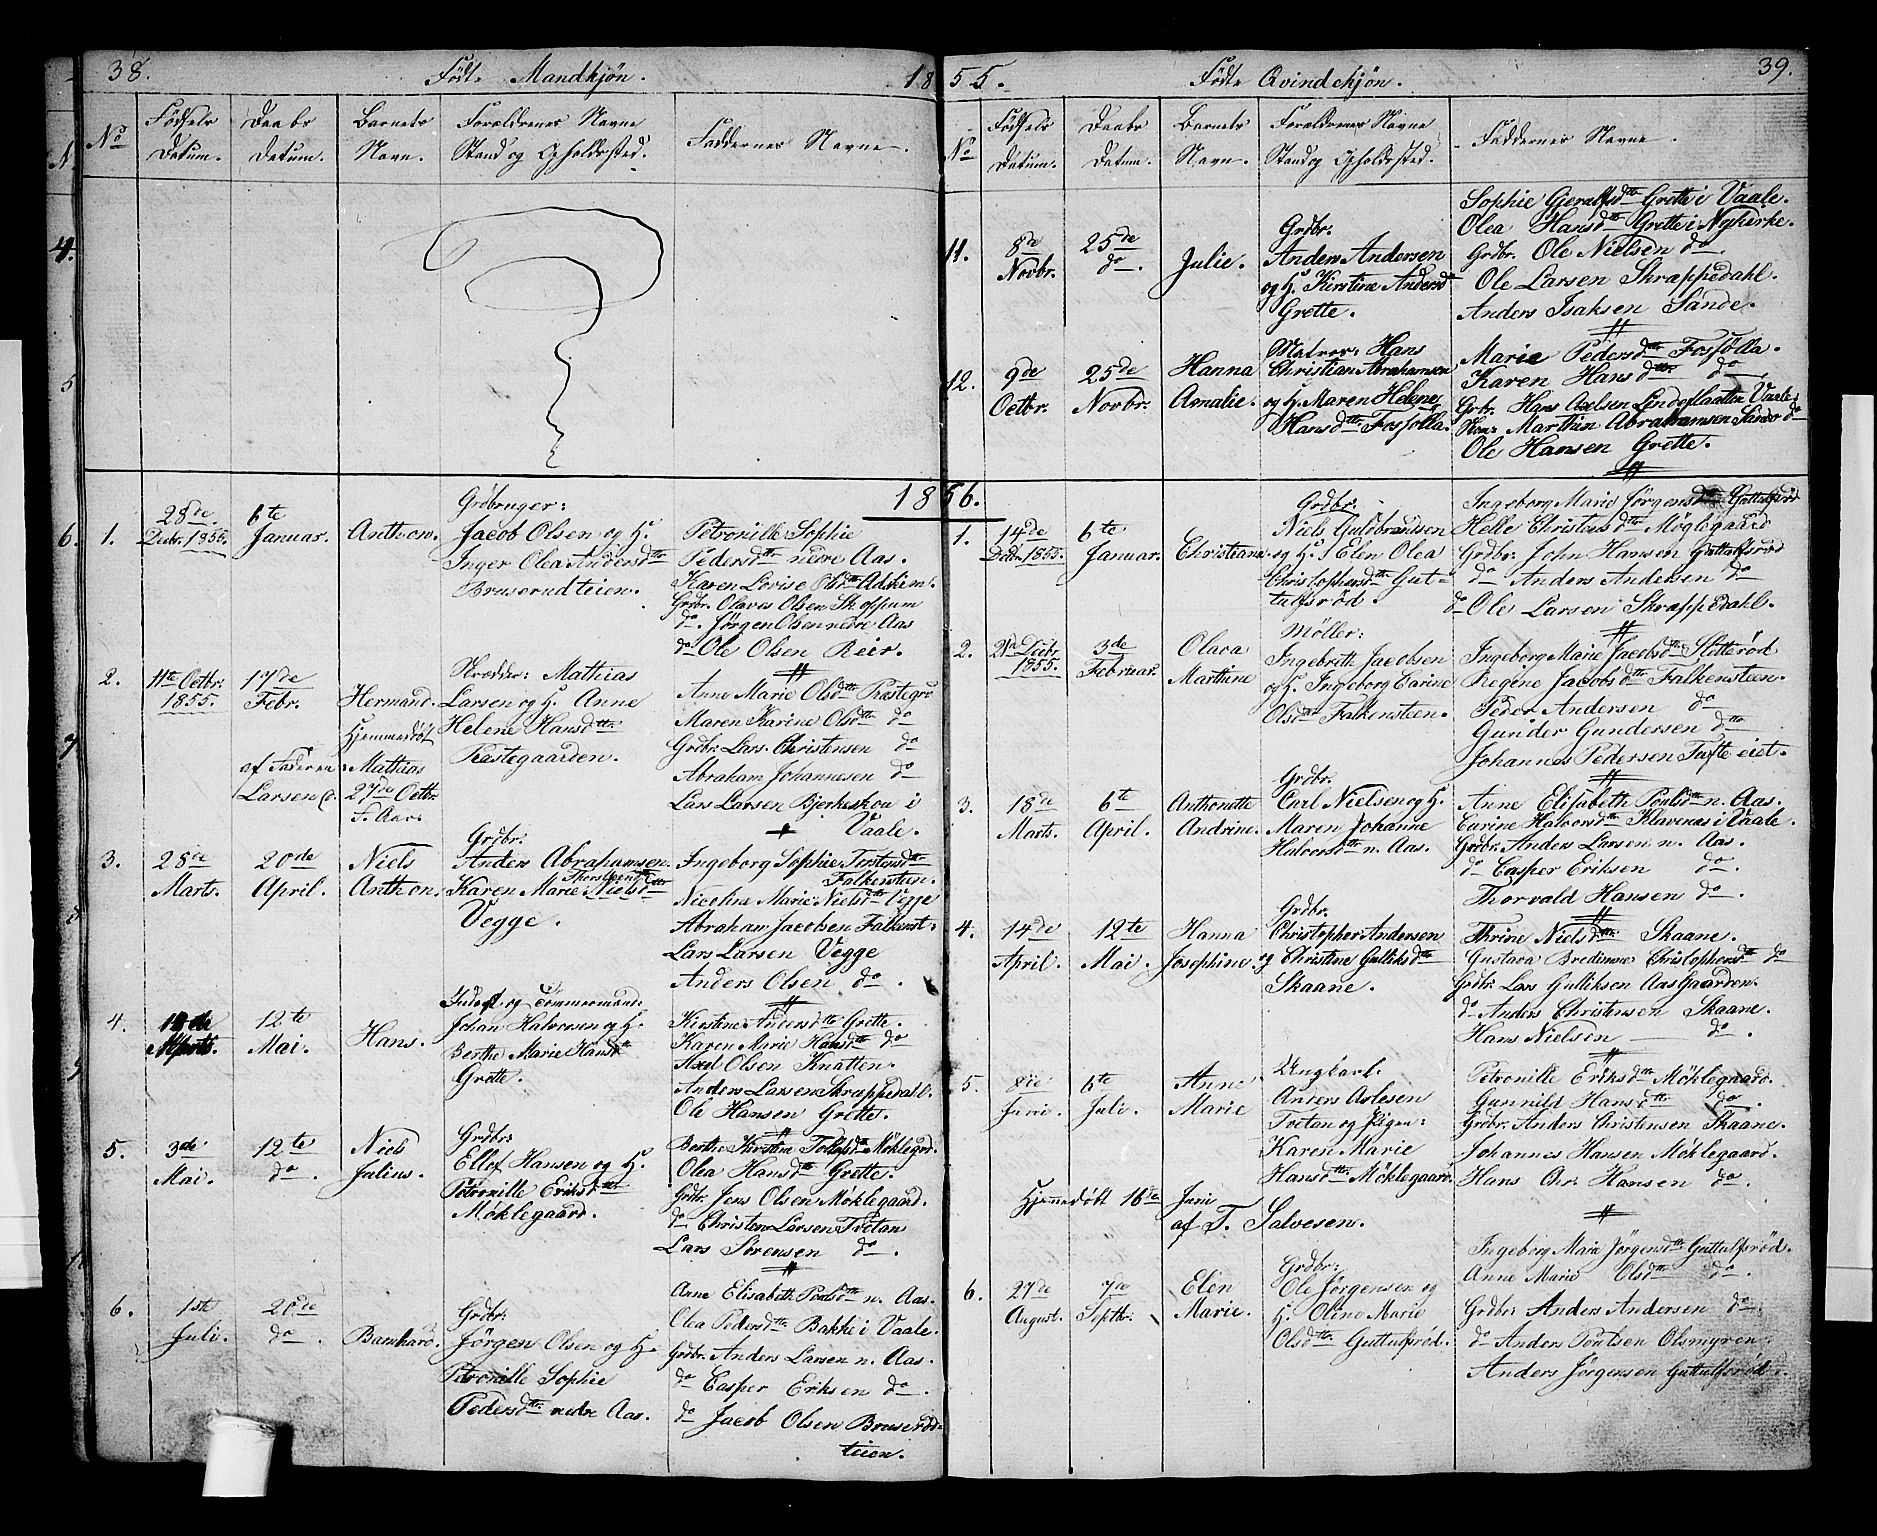 38.
Født Mandkjøn.
18
No
Fødsels
Datum.
Daabs
Datum.
Barnets
Navn.
Forældrenes Navne
Stand og Opholdssted.
Faddernes Navne.
1.
28de
Decbr. 1855.
6te
Januar.
Anthon.
Grdbruger:
Jacob Olsen og H.
Inger Olea Andersdtt
Bruserudteien.
Petronille Sophie
Pedersdtt nedre Aas.
Karen Lovise Olsdtt Adskem.
Grdbr. Olaves Olsen Skoppum
do. Jørgen Olsen nedre Aas
do Ole Olsen Reir.
2.
11te Octbr.
1855.
17de
Febr.
Hermand.
Hjemmedøbt
af Faderen: Mathias
Larsen d. 27de Octbr
F. Aar.
Skrædder: Mathias
Larsen og H. Anne
Helene Hansdtt
Præstegaarden.
Anne Marie Olsdtt Præstegrd
Maren Karine Olsdtt do
Grdbr. Lars Christensen do
Abraham Johannesen do
Lars Larsen Bjerkeskou i
Vaale.
3.
28de
Marts.
20de
April.
Niels
Anthon.
Grdbr.
Anders Abrahamsen.
Karen Marie Nielsdtt
Vegge.
Ingeborg Sophie Torstensdtt
Falkensteen.
Nicoline Marie Nielsdtt Vegge
Abraham Jacobsen Falkenst:
Lars Larsen Vegge
Anders Olsen do.
4.
12te
Mai.
Hans.
Inderst og Tømmermand:
Johan Halvorsen og H.
Berthe Marie Hansdtt
Grette.
Kirstine Andersdtt Grette.
Karen Marie Hansdtt do
Axel Olsen Knatten.
Anders Larsen Skræppedahl.
Ole Hansen Grette.
5.
3de
Mai.
12te
do.
Niels
Julius.
Grdbr:
Ellef Hansen og H.
Petronille Eriksdtt
Møklegaard.
Berthe Kirstine Tollefsdtt Møklegrd.
Olea Hansdtt Grette.
Grdbr. Jens Olsen Møklegaard.
do Christen Larsen Tvetan
Lars Sørensen do.
6.
1ste
Juli.
20de
do.
Bernhard.
Grdbr:
Jørgen Olsen og H.
Petronille Sophie
Pedersdtt nedre Aas.
Anne Elisabeth Poulsdtt n. Aas.
Olea Pedersdtt Bakke i Vaale.
Grdbr. Anders Larsen n. Aas.
do Casper Eriksen do.
do Jacob Olsen Bruserød-
teien.
55.
Født Qvindekjøn.
39.
No
Fødsels
Datum.
Daabs
Datum.
Barnets
Navn.
Forældrenes Navne
Stand og Opholdssted.
Faddernes Navne.
11.
8de
Novbr.
25de
do.
Julie.
Grdbr.
Anders Andersen
og H. Kirstine Andersd
Grette.
Sophie Gjeralfsdtt Grette i Vaale.
Olea Hansdtt Grette i Nykirke.
Grdbr. Ole Nielsen do.
Ole Larsen Skræppedahl.
Anders Isaksen Sande.
12.
9de
Octbr.
25de
Novbr.
Hanna
Amalie.
Matros: Hans
Christian Abrahamsen
og H. Maren Helene
Hansdtt Fossolla.
Marie Pedersdtt Fossolla.
Karen Hansdtt do
Grbr. Hans Axelsen Lindeslaatten Vaale
Marthin Abrahamsen Sande do
Ole Hansen Grette.
1856.
1.
14de
Decbr. 1855.
6te
Januar.
Christiane.
Grdbr.
Niels Guldbrandsen
og H. Elen Olea
Christophersdtt Gut-
tulfsrød.
Ingeborg Marie Jørgensdtt Guttulfsrød
Helle Christensdtt Møglegaard
Grdbr: John Hansen Guttulfsrød
do Anders Andersen do
do Ole Larsen Skræppedahl.
2.
21de Decbr.
1855.
3de
Februar.
Olava
Marthine
Møller:
Ingebreth Jacobsen
og H. Ingeborg Carine
Olsdtt Falkensteen.
Ingeborg Marie Jacobsdtt Slotterød
Regine Jacobsdtt Falkensteen.
Peder Andersen do
Gunder Gundersen do
Johannes Pedersen Tufte eiet.
3.
18de
Marts.
6te
April.
Anthonette
Andrine.
Grdbr.
Carl Nielsen og H.
Maren Johanne
Halvorsdtt n. Aas.
Anne Elisabeth Poulsdtt n. Aas.
Carine Halvorsdtt Klavenes i Vaale.
Grdbr. Anders Larsen n. Aas.
do Casper Eriksen do.
Thorvald Hansen do.
4.
14de
April.
12te
Mai.
Hanna
Josephine.
Grdbr.
Christopher Andersen
og Christine Gulliksdtt
Skaane.
Thrine Nielsdtt Skaane.
Gustava Bredine Christophersdtt do
Grdbr. Lars Gulliksen Aasgaarden.
do Anders Christensen Skaane.
Hans Nielsen do.
5.
8de
Juni.
6te
Juli.
Anne
Marie
Ungkarl.
Anders Aslesen
Tvetan og Pigen:
Karen Marie
Hansdtt Møklegaard.
Petronille Eriksdtt Møklegaard.
Gunnild Hansdtt do.
Grdbr. Anders Christensen Skaane.
Johannes Hansen Møklegaard.
Hans Chr. Hansen do.
Hjemmedøbt 16de Juni
af T. Salvesen.
6.
27de
August.
7de
Septbr.
Elen
Marie.
Grdbr:
Ole Jørgensen og
H. Oline Marie
Olsdtt Guttulfsrød.
Ingeborg Marie Jørgensdtt Guttulfsrød.
Anne Marie Olsdtt do.
Grdbr: Anders Andersen do.
do Anders Poulsen Olsmyren.
Anders Jørgensen Guttulfsrød.